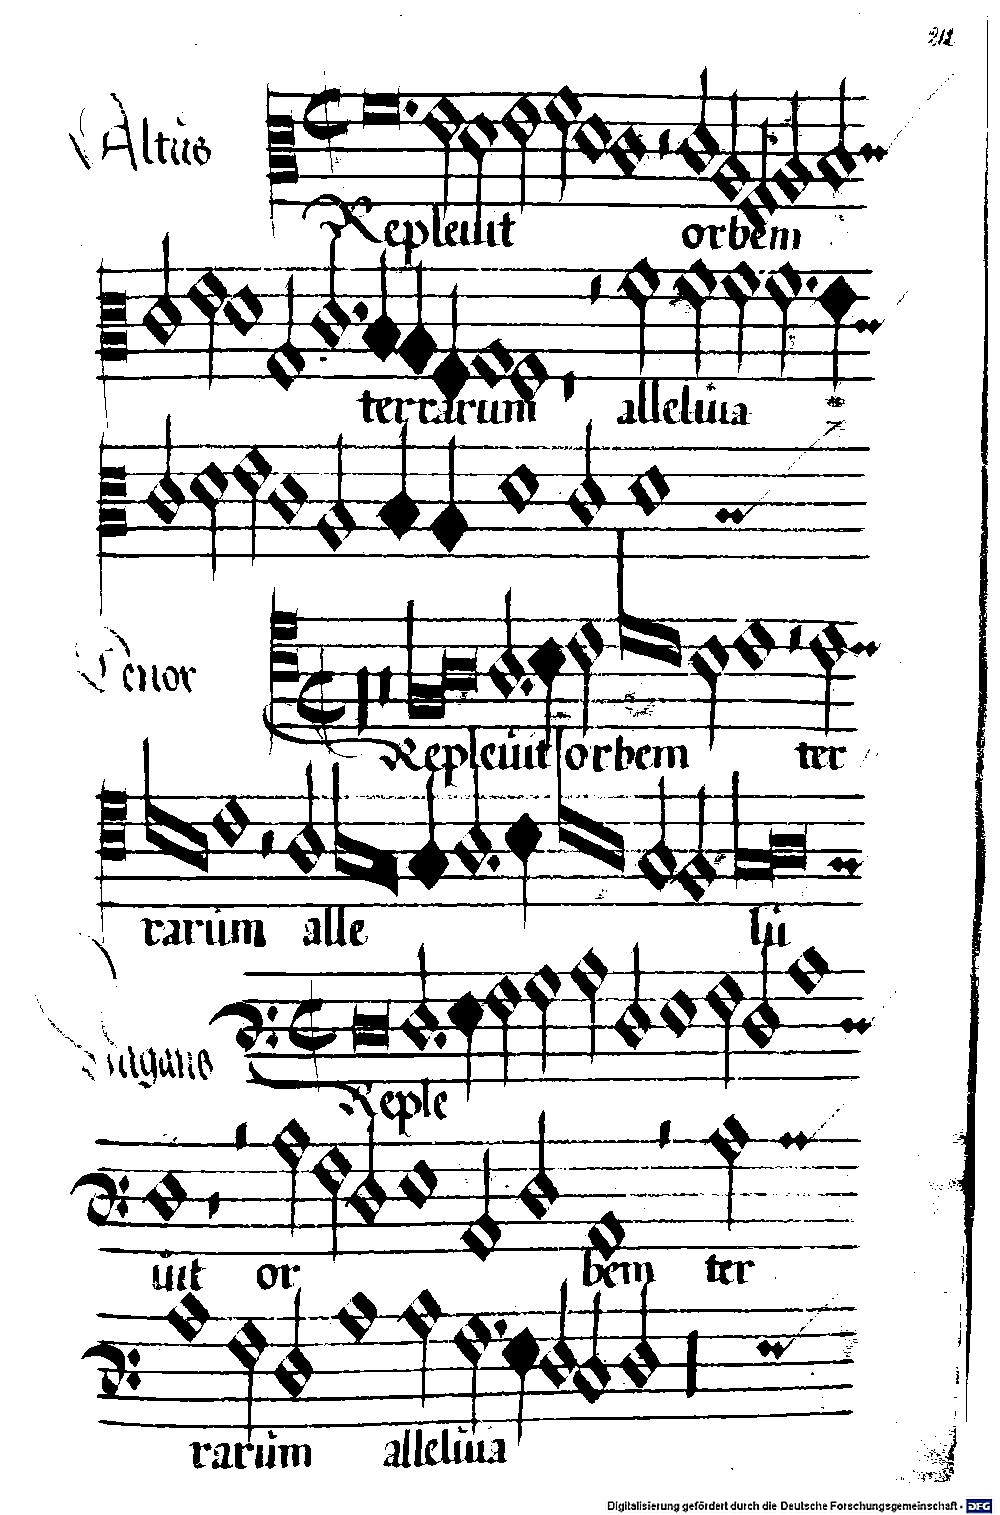 211
Altus
Repleuit orbem
terrarum alleluia
Tenor
Repleuit orbem ter
rarum alle lu
Vagans
Reple
uit or bem ter
rarum alleluia
Digitalisierung gefördert durch die Deutsche Forschungsgemeinschaft - DFG